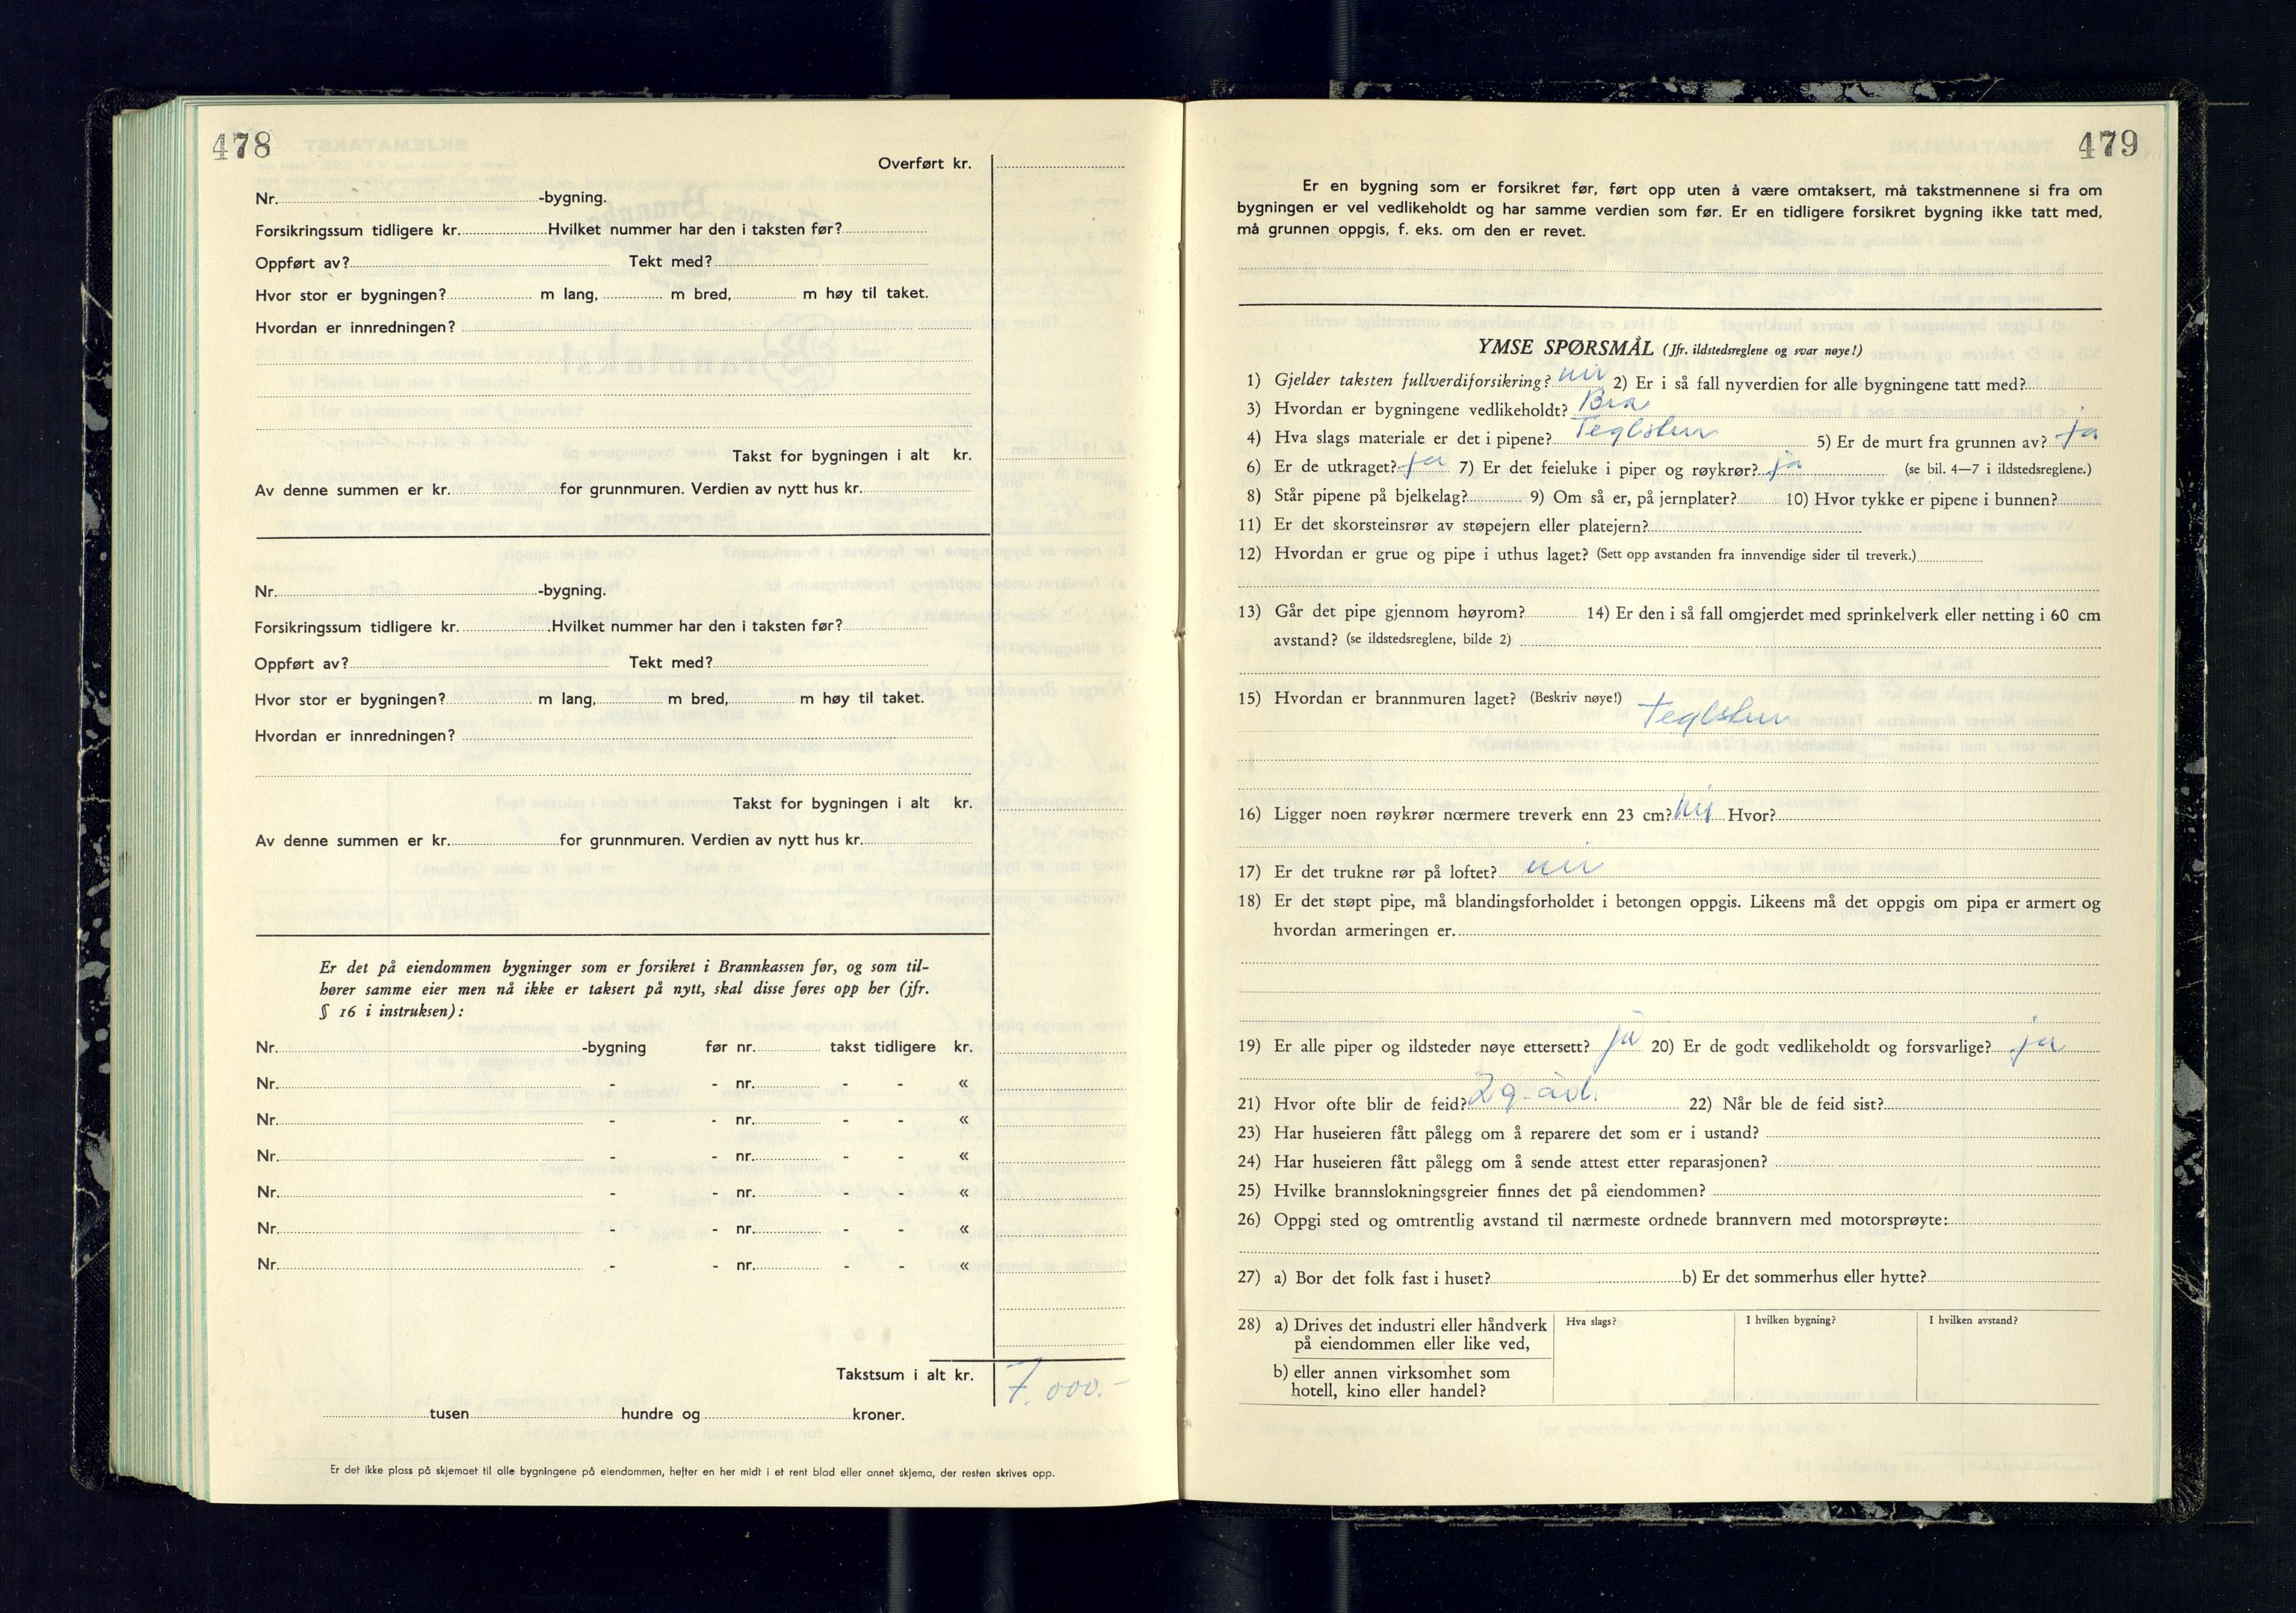 478
Overført kr.
Nr. -bygning.
Forsikringssum tidligere kr. Hvilket nummer har den i taksten før?
Oppført av? Tekt med?
Hvor stor er bygningen? m lang, m bred, m høy til taket.
Hvordan er innredningen?
Takst for bygningen i alt kr.
Av denne summen er kr. for grunnmuren. Verdien av nytt hus kr.
Nr. -bygning.
Forsikringssum tidligere kr. Hvilket nummer har den i taksten før?
Oppført av? Tekt med?
Hvor stor er bygningen? m lang, m bred, m høy til taket.
Hvordan er innredningen?
Takst for bygningen i alt kr.
Av denne summen er kr. for grunnmuren. Verdien av nytt hus kr.
Er det på eiendommen bygninger som er forsikret i Brannkassen før, og som til-
hører samme eier men nå ikke er taksert på nytt, skal disse føres opp her (jfr.
§ 16 i instruksen):
Nr. -bygning før nr. takst tidligere kr.
Nr. - - nr. - - «
Nr. - - nr. - - «
Nr. - - nr. - - «
Nr. - - nr. - - «
Nr. - - nr. - - «
Nr. - - nr. - - «
Takstsum i alt kr. 7.000.-
tusen hundre og kroner.
Er det ikke plass på skjemaet til alle bygningene på eiendommen, hefter en her midt i et rent blad eller annet skjema, der resten skrives opp.
479
Er en bygning som er forsikret før, ført opp uten å være omtaksert, må takstmennene si fra om
bygningen er vel vedlikeholdt og har samme verdien som før. Er en tidligere forsikret bygning ikke tatt med,
må grunnen oppgis, f. eks. om den er revet.
YMSE SPØRSMÅL (Jfr. ildstedsreglene og svar nøye!)
1) Gjelder taksten fullverdiforsikring? nei 2) Er i så fall nyverdien for alle bygningene tatt med?
3) Hvordan er bygningene vedlikeholdt? Bra
4) Hva slags materiale er det i pipene? Teglsten 5) Er de murt fra grunnen av? ja
6) Er de utkraget? ja 7) Er det feieluke i piper og røykrør? ja (se bil. 4—7 i ildstedsreglene.)
8) Står pipene på bjelkelag? 9) Om så er, på jernplater? 10) Hvor tykke er pipene i bunnen?
11) Er det skorsteinsrør av støpejern eller platejern?
12) Hvordan er grue og pipe i uthus laget? (Sett opp avstanden fra innvendige sider til treverk.)
13) Går det pipe gjennom høyrom? 14) Er den i så fall omgjerdet med sprinkelverk eller netting i 60 cm
avstand? (se ildstedsreglene, bilde 2)
15) Hvordan er brannmuren laget? (Beskriv nøye!) Teglsten
16) Ligger noen røykrør nærmere treverk enn 23 cm? nei Hvor?
17) Er det trukne rør på loftet? nei
18) Er det støpt pipe, må blandingsforholdet i betongen oppgis. Likeens må det oppgis om pipa er armert og
hvordan armeringen er.
19) Er alle piper og ildsteder nøye ettersett? ja 20) Er de godt vedlikeholdt og forsvarlige? ja
21) Hvor ofte blir de feid? 2 g. årl. 22) Når ble de feid sist?
23) Har huseieren fått pålegg om å reparere det som er i ustand?
24) Har huseieren fått pålegg om å sende attest etter reparasjonen?
25) Hvilke brannslokningsgreier finnes det på eiendommen?
26) Oppgi sted og omtrentlig avstand til nærmeste ordnede brannvern med motorsprøyte:
27) a) Bor det folk fast i huset? b) Er det sommerhus eller hytte?
28) a) Drives det industri eller håndverk Hva slags? I hvilken bygning? I hvilken avstand?
på eiendommen eller like ved,
b) eller annen virksomhet som
hotell, kino eller handel?